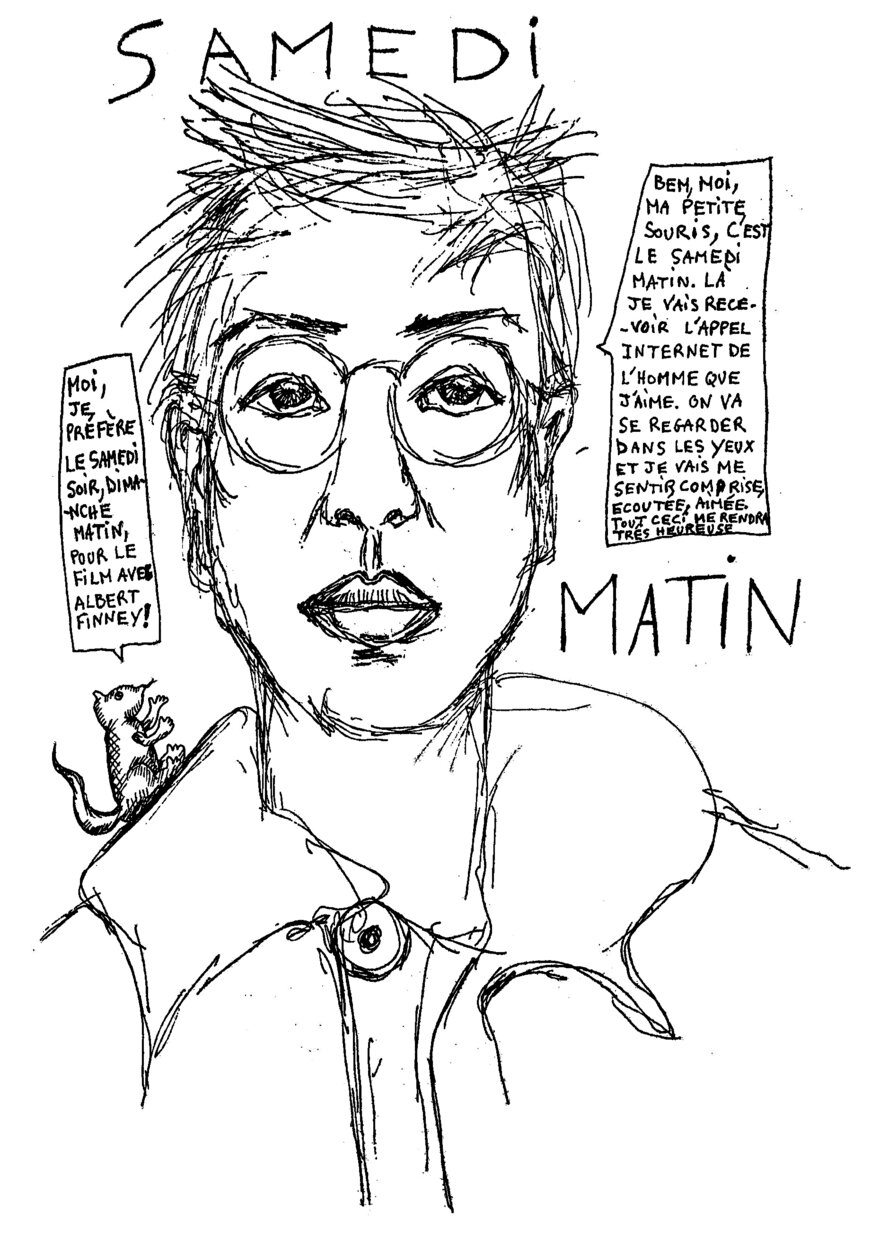 SAMEDi
MOi,
JE
PRÉFÈRE
LE SAMEDI
SOIR, DIMA-
-NCHE
MATIN,
POUR LE
FILM AVEC
ALBERT
FINNEY!
BEN, MOI,
MA PETITE
SOURIS, C'EST
LE SAMEDI
MATIN. LÀ
JE VAIS RECE-
-VOIR L'APPEL
INTERNET DE
L'HOMME QUE
J'AIME. ON VA
SE REGARDER
DANS LES YEUX
ET JE VAIS ME
SENTIR COMPRISE,
ECOUTÉE, AIMÉE.
TOUT CECI ME RENDRA
TRÈS HEUREUSE
MATiN